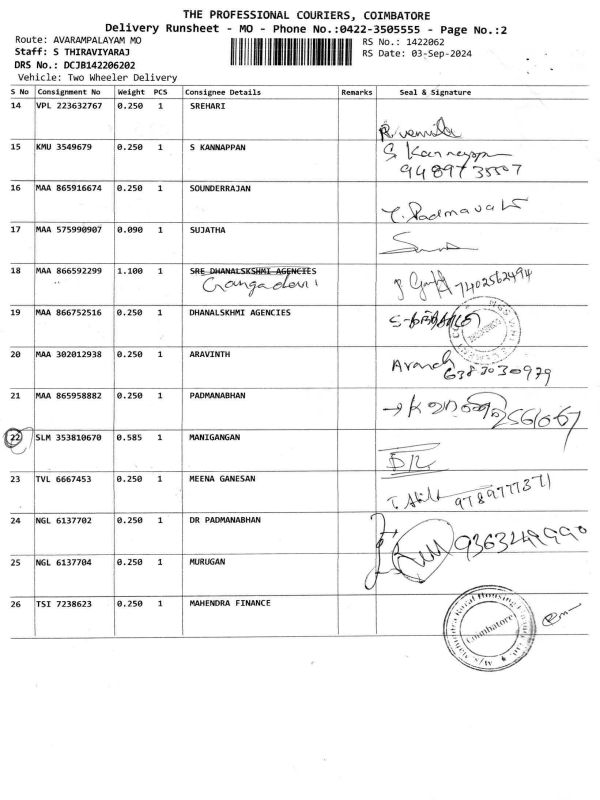 THE PROFESSIONAL COURIERS, COIMBATORE
Delivery Runsheet - MO - Phone No.:0422-3505555 - Page No.:2
Route: AVARAMPALAYAM MO
RS No.: 1422062
Staff: S THIRAVIYARAJ
RS Date: 03-Sep-2024
DRS No.: DCJB142206202
Vehicle: Two Wheeler Delivery
S No Consignment No Weight PCS Consignee Details Remarks Seal & Signature
14 VPL 223632767 0.250 1 SREHARI
15 KMU 3549679 0.250 1 S KANNAPPAN
S Kannappan
9489735507
16 MAA 865916674 0.250 1 SOUNDERRAJAN
T. Padmavathi
17 MAA 575990907 0.090 1 SUJATHA
18 MAA 866592299 1.100 1 SRE DHANALSKSHMI AGENCIES
Gangadevi
7402562494
19 MAA 866752516 0.250 1 DHANALSKHMI AGENCIES
20 MAA 302012938 0.250 1 ARAVINTH
6383030979
21 MAA 865958882 0.250 1 PADMANABHAN
22 SLM 353810670 0.585 1 MANIGANGAN
23 TVL 6667453 0.250 1 MEENA GANESAN
9789777371
24 NGL 6137702 0.250 1 DR PADMANABHAN
9363249990
25 NGL 6137704 0.250 1 MURUGAN
26 TSI 7238623 0.250 1 MAHENDRA FINANCE
Coimbatore